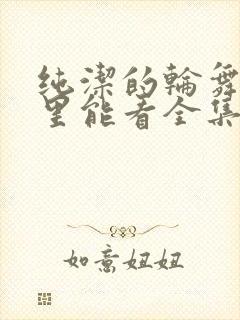 纯潔的輪舞
里能看全集
如意妞妞